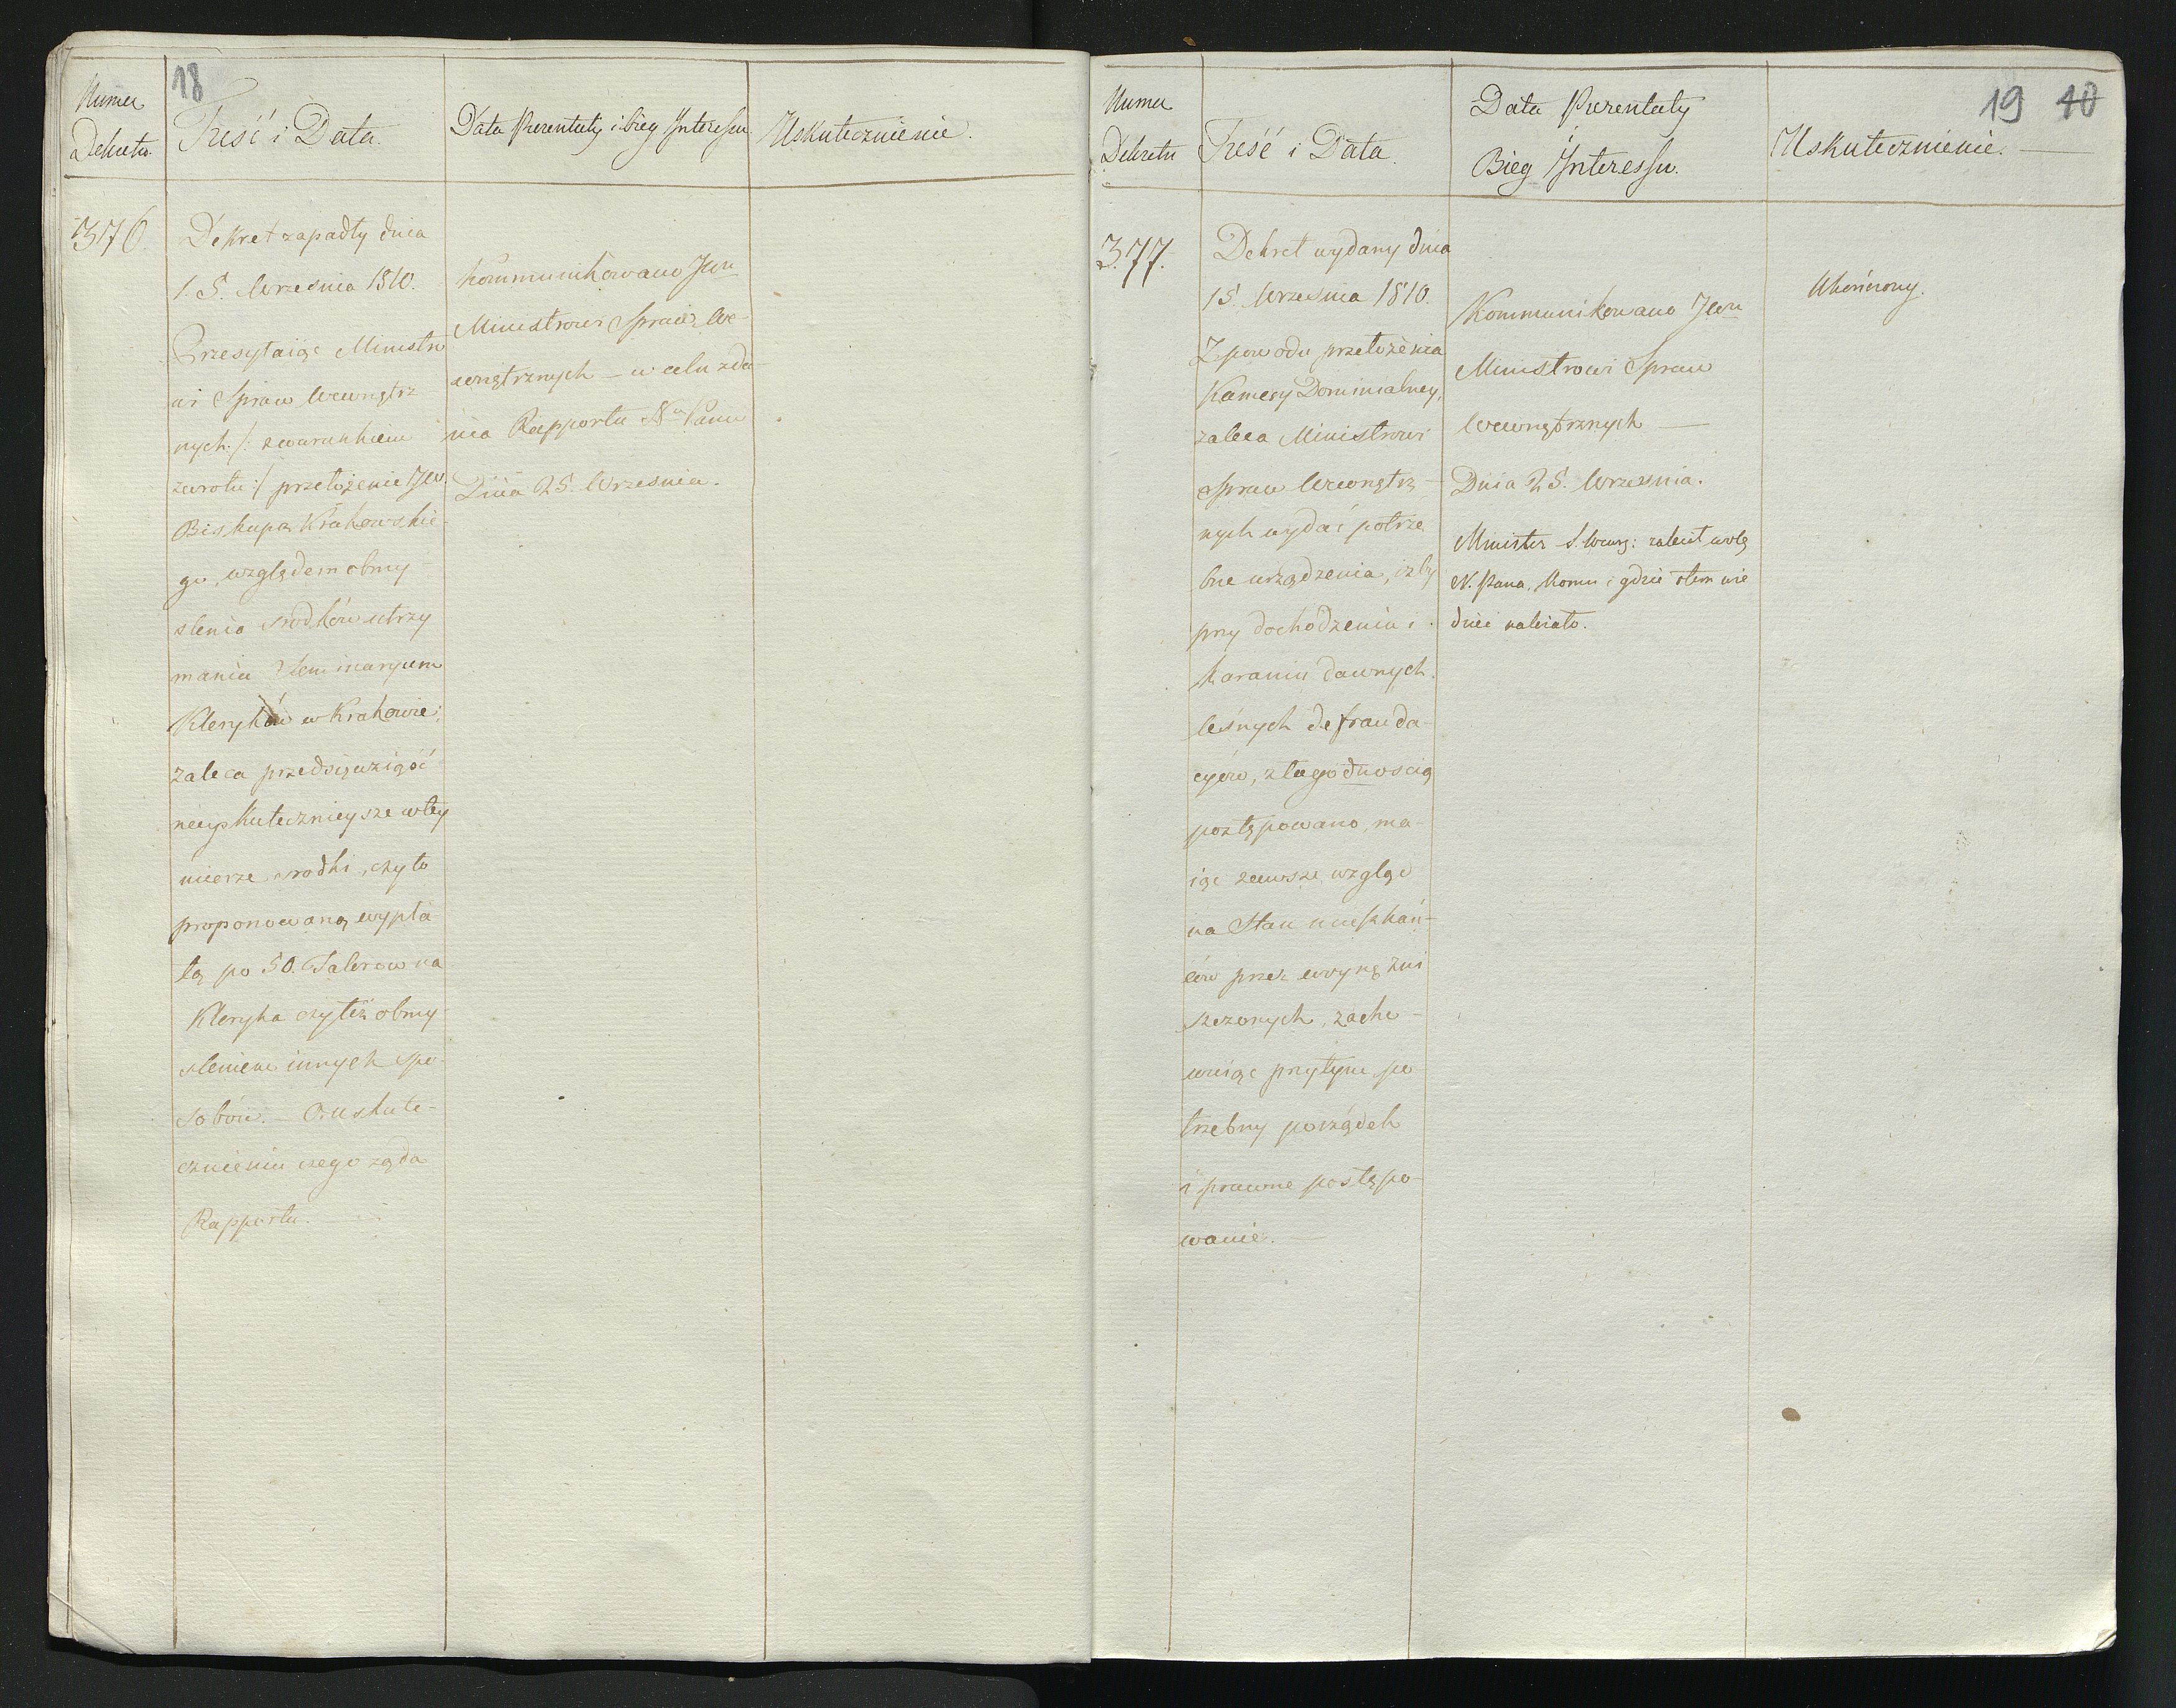 18
Numer
Dekretu.
Treść i Data.
Data Prezentaty i bieg Interessu.
Uskutecznienie.
376.
Dekret zapadły dnia
15. Wrzesnia 1810.
Przesyłaiąc Ministro
wi Spraw Wewnętrz
nych /: z warunkiem
zwrotu :/ przełożenie JW.
Biskupa Krakowskie-
go, względem obmy-
slenia srodków utrzy
mania Seminaryum
Kleryków w Krakowie;
zaleca przedsięwziąść
nayskutecznieysze w tey
mierze srodki, czy to
proponowaną wypła
tą po 50. Talerow na
Kleryka czy też obmy-
sleniem innych spo-
sobów. — O uskute-
cznieniu czego ząda
Rapportu. —
Kommunikowano JWu
Ministrowi Spraw We-
wnętrznych — w celu zda-
nia Rapportu Nu Panu
Dnia 25. Wrzesnia.
19 40
Numer
Dekretu
Treść i Data.
Data Prezentaty
Bieg Interessu.
Uskutecznienie. —
377.
Dekret wydany dnia
15. Wrzesnia 1810.
Z powodu przełożenia
Kamery Dominialney,
zaleca Ministrowi
Spraw Wewnętrz-
nych wydać potrze
bne urządzenia, iżby
przy dochodzeniu i
karaniu dawnych
leśnych defrauda-
cyów, z łagodnoscią
postępowano, ma-
iąc zawsze wzgląd
na Stan mieszkań-
ców przez woynę zni
szczonych, zacho-
wuiąc przytym po
trzebny porządek
i prawne postępo-
wanie. —
Kommunikowano JWu
Ministrowi Spraw
Wewnętrznych —
Dnia 25. Wrzesnia.
Minister S. Wewą: zalecił wolą
N. Pana, komu i gdzie o tem wie
dzieć należało.
Ukończony.